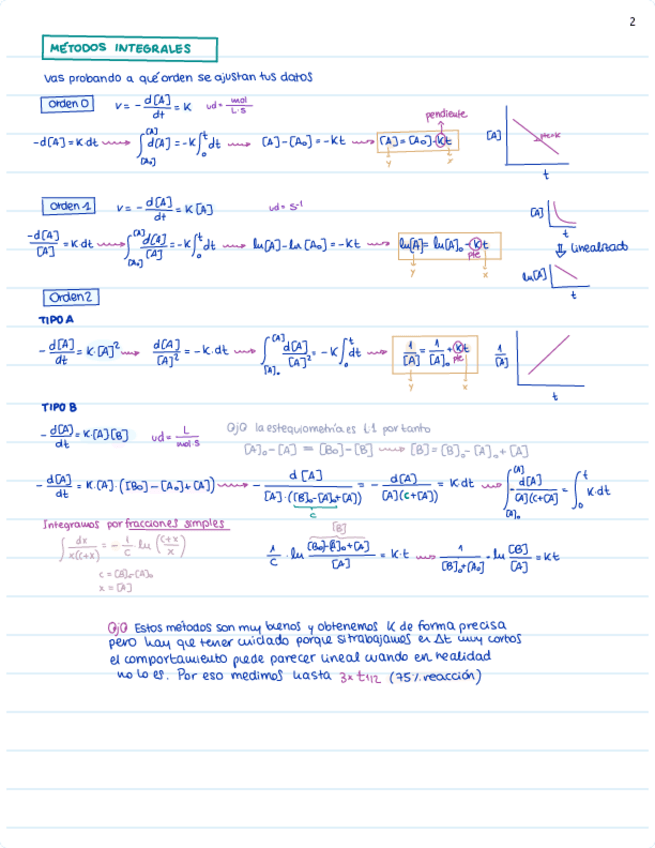 2
MÉTODOS INTEGRALES
Vas probando a qué orden se ajustan tus datos
Orden 0 v = - d[A]/dt = K ud = mol/L·s
pendiente
-d[A] = K·dt ⟿ ∫_[A₀]^[A] d[A] = -K∫₀^t dt ⟿ [A]-[A₀] = -Kt ⟿ [A] = [A₀]-Kt [A] pte=K
y x t
Orden 1 v = - d[A]/dt = K[A] ud = s⁻¹ [A]
t
-d[A]/[A] = K dt ⟿ ∫_[A₀]^[A] d[A]/[A] = -K∫₀^t dt ⟿ ln[A]-ln[A₀] = -Kt ⟿ ln[A] = ln[A]₀ - Kt ⇓ linealizado
pte
y x ln[A]
t
Orden 2
TIPO A
- d[A]/dt = K·[A]² ⟿ d[A]/[A]² = -K·dt ⟿ ∫_[A]₀^[A] d[A]/[A]² = -K∫₀^t dt ⟿ 1/[A] = 1/[A]₀ + Kt 1/[A]
pte
y x t
TIPO B
- d[A]/dt = K·[A][B] ud = L/mol·s OJO la estequiometría es 1:1 por tanto
[A]₀-[A] = [B₀]-[B] ⟿ [B] = [B]₀-[A]₀+[A]
- d[A]/dt = K·[A]·([B₀]-[A₀]+[A]) ⟿ - d[A]/[A]·([B]₀-[A]₀+[A]) = - d[A]/[A](c+[A]) = K·dt ⟿ ∫_[A]₀^[A] - d[A]/[A](c+[A]) = ∫₀^t K·dt
c
Integramos por fracciones simples
[B]
∫ dx/x(c+x) = - 1/c · ln (c+x/x) 1/c · ln [B₀]-[A]₀+[A]/[A] = K·t ⟿ 1/[B]₀+[A₀] · ln [B]/[A] = Kt
c = [B]₀-[A]₀
x = [A]
OJO Estos métodos son muy buenos y obtenemos K de forma precisa
pero hay que tener cuidado porque si trabajamos en Δt muy cortos
el comportamiento puede parecer lineal cuando en realidad
no lo es. Por eso medimos hasta 3x t1/2 (75% reacción)